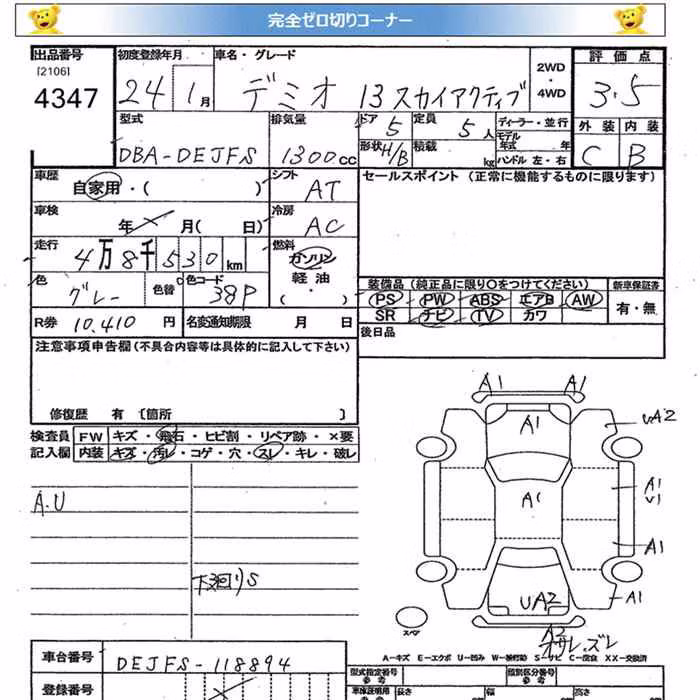 完全ゼロ切りコーナー
出品番号 初度登録年月 車名・グレード 2WD・4WD 評価点
[2106]
4347 24 1月 デミオ 13スカイアクティブ 3.5
型式 排気量 ドア 定員 ディーラー・並行 外装 内装
DBA-DEJFS 1300cc 5 5人 モデル年式 年 C B
形状 H/B 積載 kg ハンドル 左・右
車歴 自家用・( ) シフト AT セールスポイント (正常に機能するものに限ります)
車検 年 月( 日) 冷房 AC
走行 4万8千530km 燃料 ガソリン 軽油・( )
色 グレー 色替 C 色コード 38P 装備品(純正品に限り○をつけてください) 新車保証書
PS PW ABS エアB AW 有・無
SR ナビ TV カワ
R券 10,410円 名変通知期限 月 日 後日品
注意事項申告欄(不具合内容等は具体的に記入して下さい)
修復歴 有 [箇所 ]
検査員記入欄 FW キズ・飛石・ヒビ割・リペア跡・×要
内装 キズ・汚レ・コゲ・穴・スレ・キレ・破レ
A.U
下廻りS
A1 A1
A1 UA2
A1 A1
U1
A1
UA2 A1
スペア
A2
オサレ.ズレ
A-キズ E-エクボ U-凹み W-補修跡 S-サビ C-腐食 XX-交換済
車台番号 DEJFS-118894 型式指定番号 参考 類別区分番号 参考
登録番号 車庫証明用 参考 長さ 幅 高さ